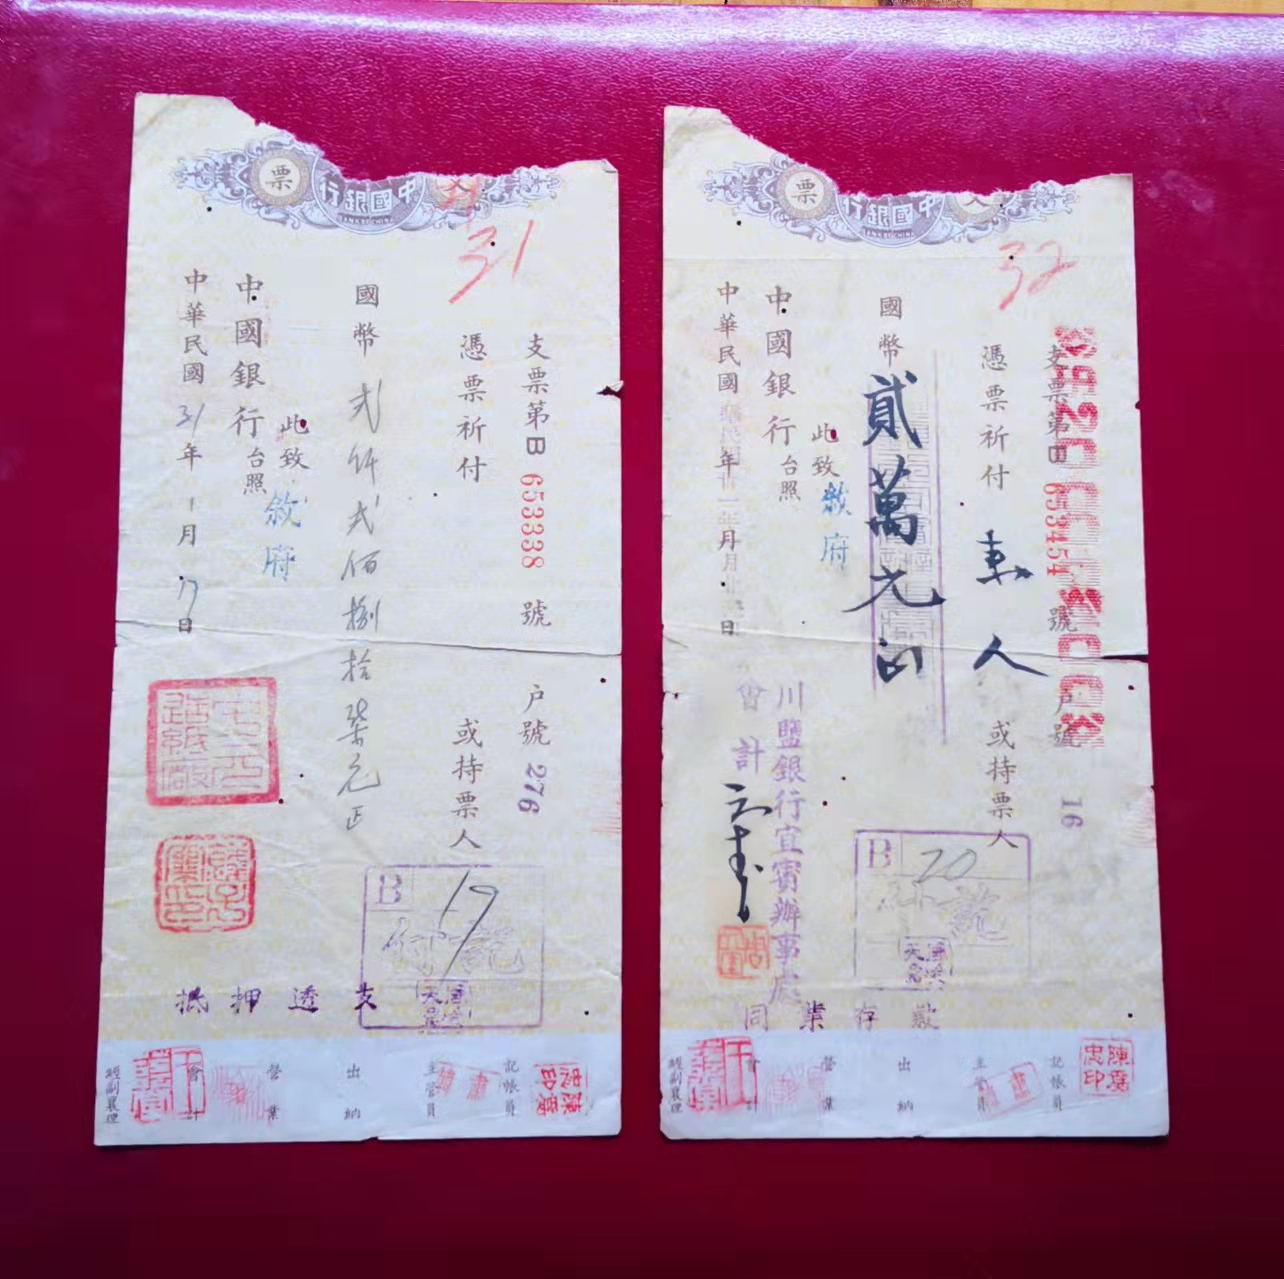 票
中國銀行
BANK OF CHINA
31
支票第B 653338 號 戶號 276
憑票祈付 或持票人
國幣 弍仟弍佰捌拾柒元正
此致
敘府
中國銀行台照
中華民國 31 年 1 月 17 日
B 17
付訖
抵押透支
記帳員
主管員
出納
營業
會計
經副襄理
票
中國銀行
BANK OF CHINA
32
支票第B 653454 號 戶號 16
憑票祈付 來人 或持票人
國幣 貳萬元正
此致
敘府
中國銀行台照
中華民國 年 月 日
川鹽銀行宜賓辦事處
會計
B 20
付訖
同業存款
記帳員
主管員
出納
營業
會計
經副襄理